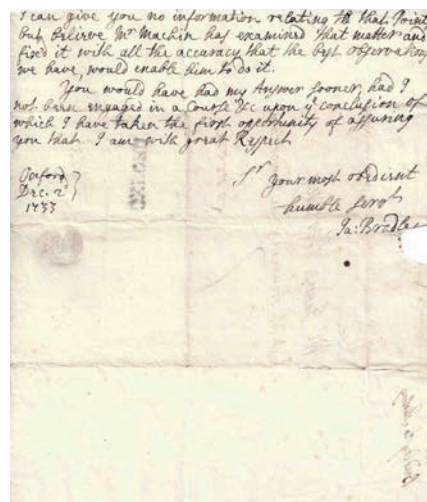 I can give you no information relating to that Point
but believe Mr Machin has examined that matter and
fixed it with all the accuracy that the best Observations
we have, would enable him to do it.
You would have had my Answer sooner, had I
not been engaged in a Course &c upon ye conclusion of
which I have taken the first opportunity of assuring
you that I am with great Respect
Oxford
Decr. 2d
1733
Sr your most obedient
humble Servt
Ja: Bradley